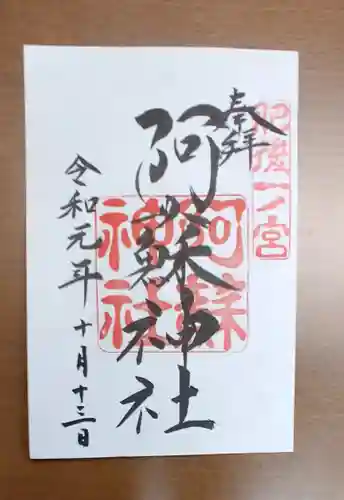 奉拝
肥後一ノ宮
阿蘇神社
阿蘇神社
令和元年十月十三日